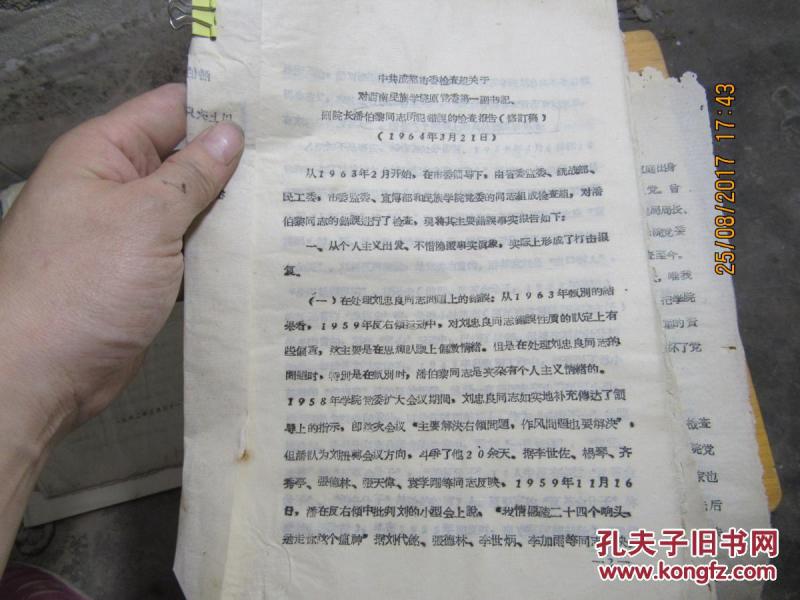 中共成都市委检查组关于
对西南民族学院原党委第一副书记、
副院长潘伯黎同志所犯错误的检查报告(修訂稿)
(1964年3月21日)
从1963年2月开始,在市委領导下,由省委监委、統战部、
民工委,市委监委、宣傳部和民族学院党委的同志組成检查組,对潘
伯黎同志的錯誤进行了检查,現将其主要錯誤事实报告如下:
一、从个人主义出发、不惜隐瞒事实眞象,实际上形成了打击报
复。
(一)在处理刘忠良同志問題上的錯誤:从1963年甄別的結
果看,1959年反右傾运动中,对刘忠良同志錯誤性质的认定上有
些偏高,这主要是在思想认識上偏激情緒。但是在处理刘忠良同志的
問題时,特別是在甄別时,潘伯黎同志是夾杂有个人主义情緒的。
1958年学院党委扩大会议期間,刘忠良同志如实地补充傳达了領
导上的指示,即这次会议“主要解决右傾問題,作风問題也要解决”,
但潘认为刘扭轉会议方向,斗爭了他20余天。据李世佐、楊琴、齐
秀亭、張德林、張天偉、同志反映,1959年11月16
日,潘在反右傾中批判刘的小型会上說,“我情愿磕二十四个响头,
送走你这个瘟神”据刘代、張德林、李世炳、李加雨等同志
—2—
庭出身
党。曾
局局长、
院党委
查至今。
唯我
把学院
的責
坏了党
检查
院党
家也
后
中
25/08/2017 17:43
孔夫子旧书网
www.kongfz.com